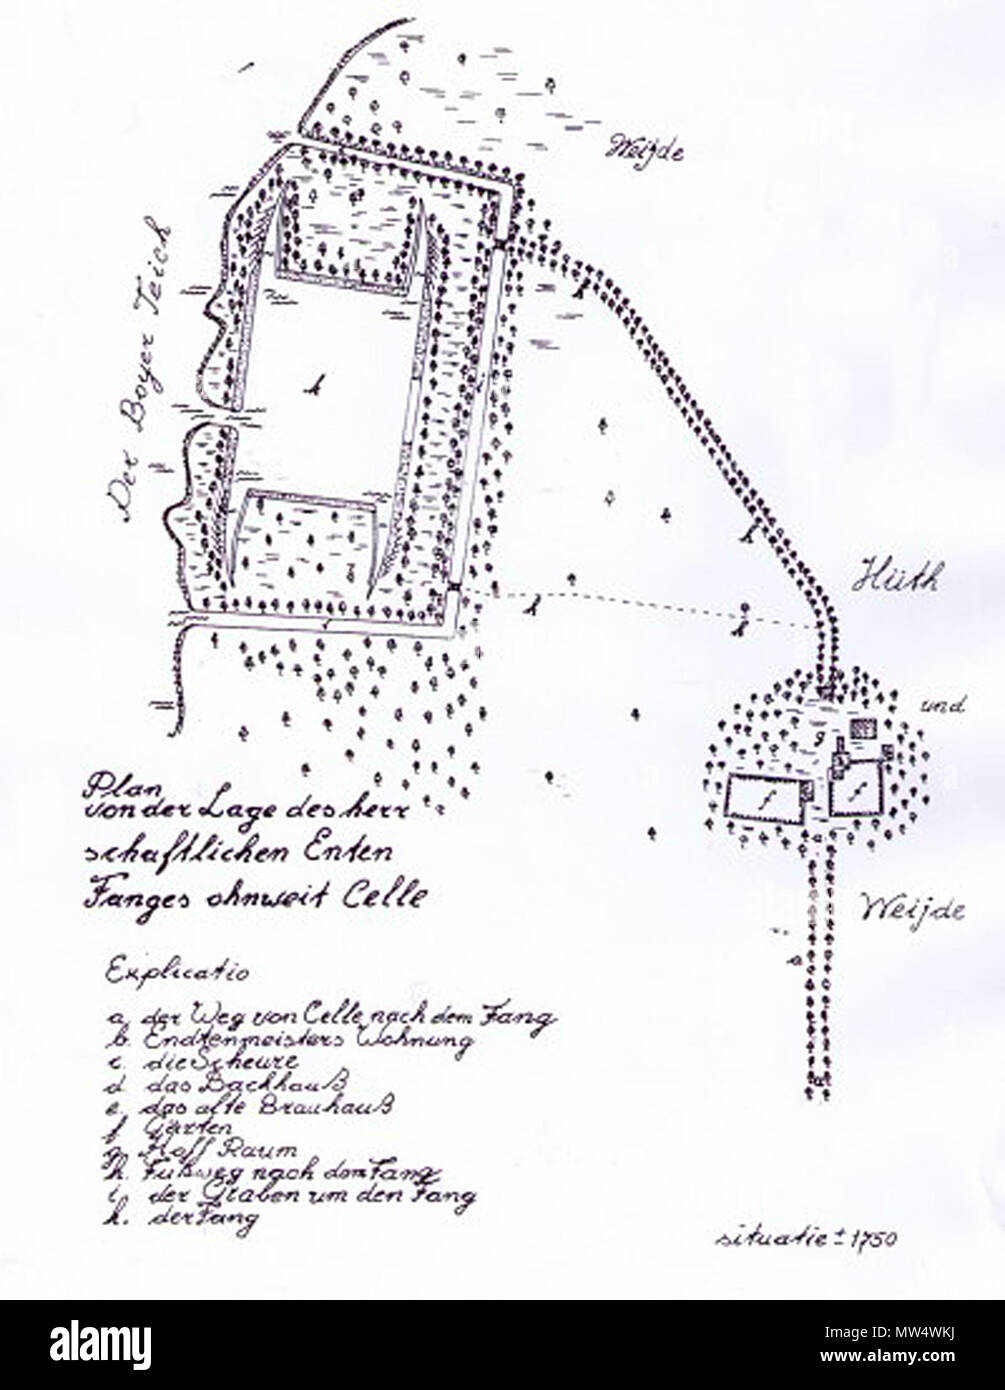 Weijde
Der Boyer Teich
k
h
h
h
h
Hüth
und
g
f
f
Weijde
a
a
Plan
von der Lage des herr
schaftlichen Enten
Fanges ohnweit Celle
Explicatio
a der Weg von Celle nach dem Fang
b. Endtenmeisters Wohnung
c. die Scheure
d das Backhauß
e. das alte Brauhauß
f Gärten
g. Hoff Raum
h. Fußweg nach dem Fang
i, der Graben um den Fang
k. der Fang
situatie ± 1750
alamy
Image ID: MW4WKJ
www.alamy.com